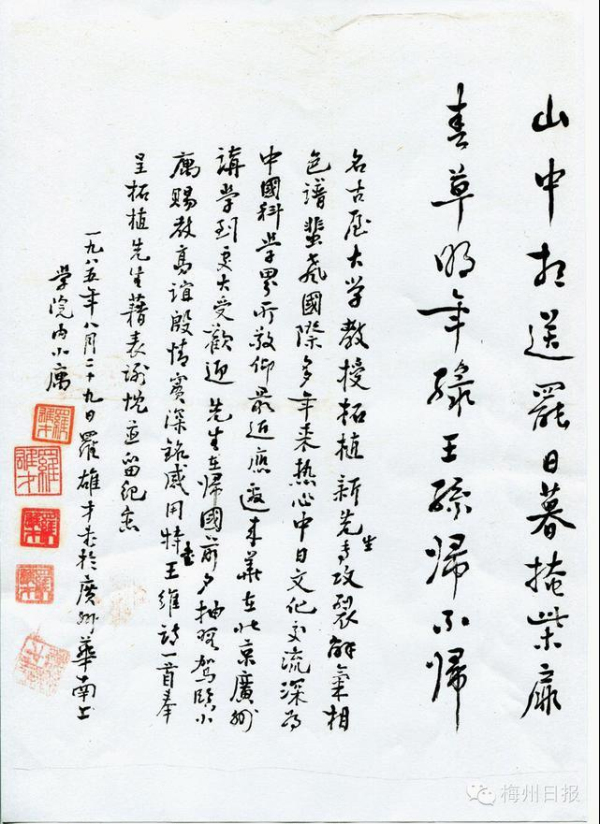 山中相送罷日暮掩柴扉
春草明年綠王孫歸不歸
名古屋大学教授柘植新先生專攻裂解氣相
色譜蜚聲國際多年来热心中日文化交流深为
中國科学界所敬仰最近應邀来華在北京廣州
講学到處大受歡迎先生在歸國前夕抽暇駕臨小
寓賜教高誼殷情實深銘感用特書王維詩一首奉
呈柘植先生藉表謝忱並留紀念
一九八五年八月二十九日羅雄才於廣州華南工
学院内小寓
羅雄才
梅州日报